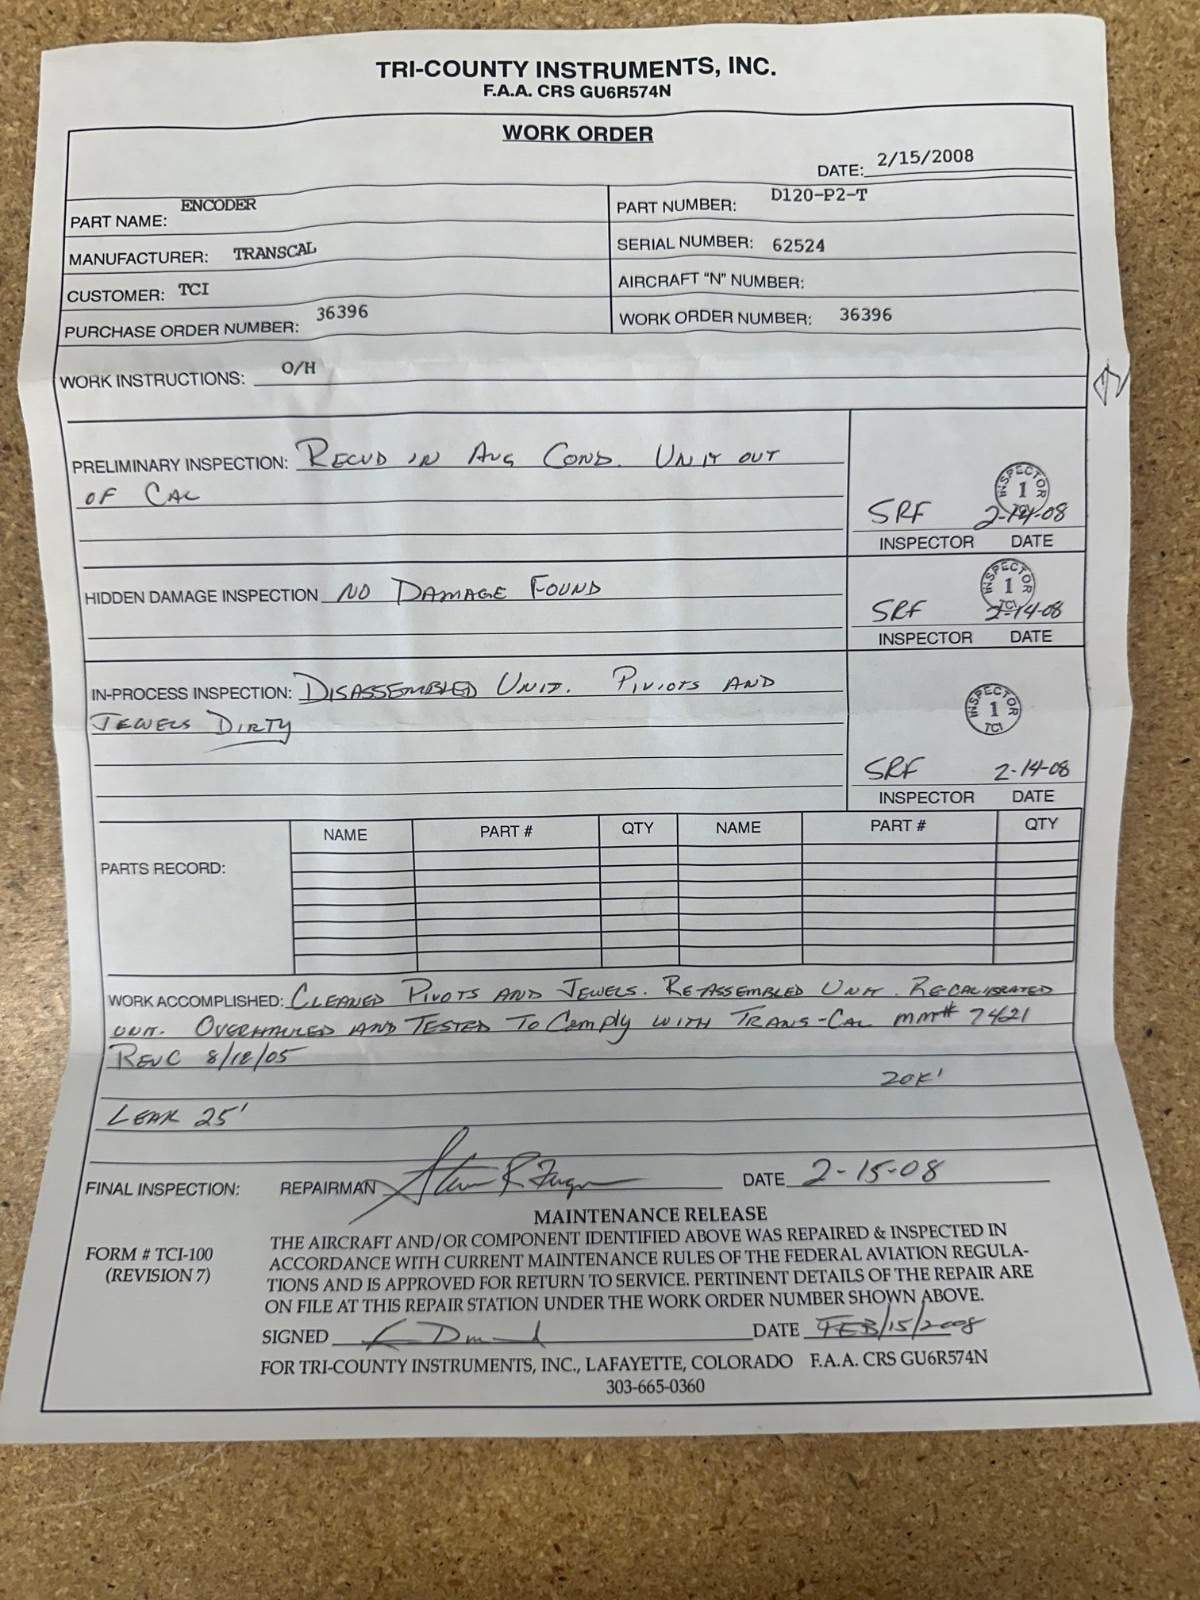 TRI-COUNTY INSTRUMENTS, INC.
F.A.A. CRS GU6R574N
WORK ORDER
DATE: 2/15/2008
PART NAME: ENCODER
PART NUMBER: D120-P2-T
MANUFACTURER: TRANSCAL
SERIAL NUMBER: 62524
CUSTOMER: TCI
AIRCRAFT "N" NUMBER:
PURCHASE ORDER NUMBER: 36396
WORK ORDER NUMBER: 36396
WORK INSTRUCTIONS: O/H
PRELIMINARY INSPECTION: RECVD IN AVG COND. UNIT OUT
OF CAL
INSPECTOR 1 TCI
SRF 2-14-08
INSPECTOR DATE
HIDDEN DAMAGE INSPECTION NO DAMAGE FOUND
INSPECTOR 1 TCI
SRF 2-14-08
INSPECTOR DATE
IN-PROCESS INSPECTION: DISASSEMBLED UNIT. PIVIOTS AND
JEWELS DIRTY
INSPECTOR 1 TCI
SRF 2-14-08
INSPECTOR DATE
PARTS RECORD:
NAME PART # QTY NAME PART # QTY
WORK ACCOMPLISHED: CLEANED PIVOTS AND JEWELS. RE-ASSEMBLED UNIT. RECALIBRATED
UNIT. OVERHAULED AND TESTED TO COMPLY WITH TRANS-CAL MM# 7421
REV C 8/18/05
20K'
LEAK 25'
FINAL INSPECTION: REPAIRMAN DATE 2-15-08
MAINTENANCE RELEASE
FORM # TCI-100
(REVISION 7)
THE AIRCRAFT AND/OR COMPONENT IDENTIFIED ABOVE WAS REPAIRED & INSPECTED IN
ACCORDANCE WITH CURRENT MAINTENANCE RULES OF THE FEDERAL AVIATION REGULA-
TIONS AND IS APPROVED FOR RETURN TO SERVICE. PERTINENT DETAILS OF THE REPAIR ARE
ON FILE AT THIS REPAIR STATION UNDER THE WORK ORDER NUMBER SHOWN ABOVE.
SIGNED DATE FEB/15/2008
FOR TRI-COUNTY INSTRUMENTS, INC., LAFAYETTE, COLORADO F.A.A. CRS GU6R574N
303-665-0360